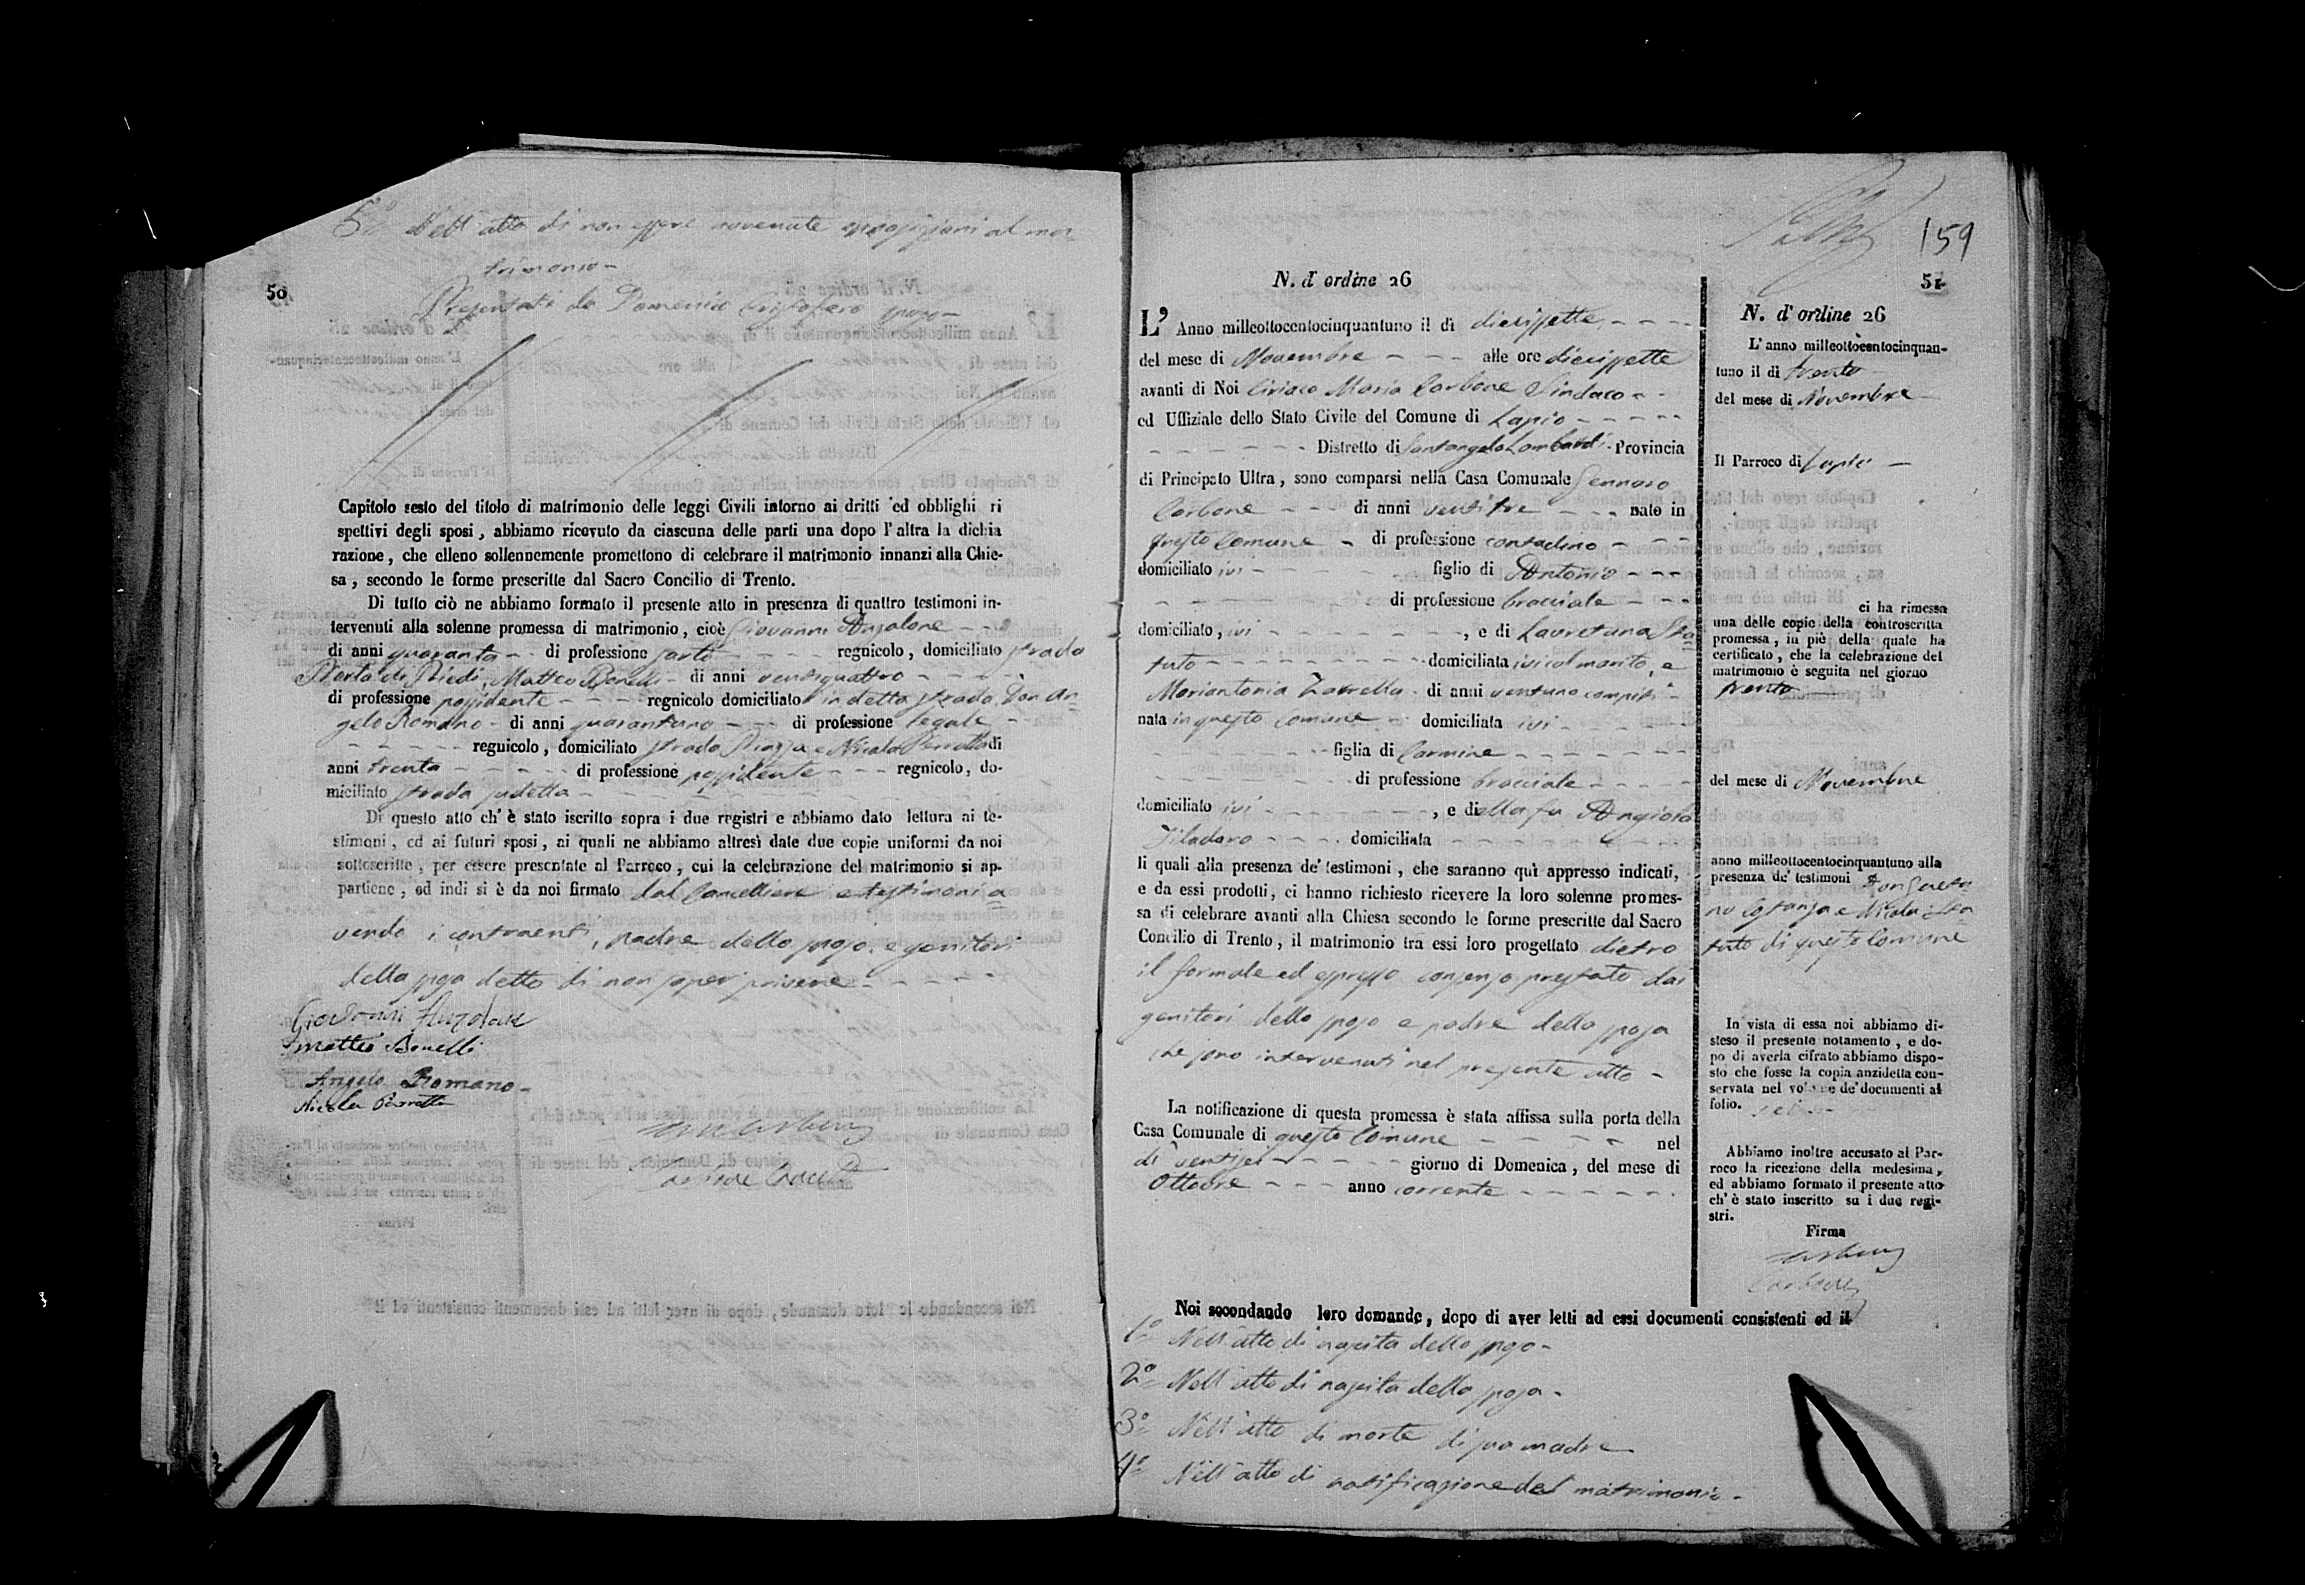 5.º Nell'atto di non essere avvenute opposizioni al ma-
trimonio-
50
Presentati da Domenico Cristofaro sposo-
Capitolo sesto del titolo di matrimonio delle leggi Civili intorno ai dritti ed obblighi ri
spettivi degli sposi, abbiamo ricevuto da ciascuna delle parti una dopo l'altra la dichia
razione, che elleno sollennemente promettono di celebrare il matrimonio innanzi alla Chie-
sa, secondo le forme prescritte dal Sacro Concilio di Trento.
Di tutto ciò ne abbiamo formato il presente atto in presenza di quattro testimoni in-
tervenuti alla solenne promessa di matrimonio, cioè Giovanni Anzalone
di anni quaranta di professione sarto regnicolo, domiciliato strada
Porta di Piedi, Matteo Bonelli di anni ventiquattro
di professione possidente regnicolo domiciliato in detta strada, Don An=
gelo Romano di anni quarantuno di professione legale
regnicolo, domiciliato strada Piazza e Nicola Perrotta di
anni trenta di professione possidente regnicolo, do-
miciliato strada sudetta
Di questo atto ch'è stato iscritto sopra i due registri e abbiamo dato lettura ai te-
stimoni, ed ai futuri sposi, ai quali ne abbiamo altresì date due copie uniformi da noi
sottoscritte, per essere presentate al Parroco, cui la celebrazione del matrimonio si ap-
partiene, ed indi si è da noi firmato dal Cancelliere e testimoni a=
vendo i contraenti, padre dello sposo, e genitori
della sposa detto di non saper scrivere
Giovanni Anzalone
Matteo Bonelli
Angelo Romano
Nicola Perrotta
159
51
N. d'ordine 26
L'Anno milleottocentocinquantuno il dì diecissette
del mese di Novembre alle ore diecissette
avanti di Noi Ciriaco Maria Carbone Sindaco
ed Uffiziale dello Stato Civile del Comune di Lapio
Distretto di Santangelo Lombardi Provincia
di Principato Ultra, sono comparsi nella Casa Comunale Gennaro
Carbone di anni ventitre nato in
questo Comune di professione contadino
domiciliato ivi figlio di Antonio
di professione bracciale
domiciliato, ivi, e di Lauretana Sta=
tuto domiciliata ivi col marito, e
Mariantonia Zarrella di anni ventuno compiti
nata in questo Comune domiciliata ivi
figlia di Carmine
di professione bracciale
domiciliato ivi, e di ella fu Angiola
Filadoro domiciliata
li quali alla presenza de' testimoni, che saranno quì appresso indicati,
e da essi prodotti, ci hanno richiesto ricevere la loro solenne promes-
sa di celebrare avanti alla Chiesa secondo le forme prescritte dal Sacro
Concilio di Trento, il matrimonio tra essi loro progettato dietro
il formale ed espresso consenso prestato dai
genitori dello sposo e padre della sposa
che sono intervenuti nel presente atto
La notificazione di questa promessa è stata affissa sulla porta della
Casa Comunale di questo Comune nel
dì ventisei giorno di Domenica, del mese di
Ottobre anno corrente
N. d'ordine 26
L'anno milleottocentocinquan-
tuno il dì trenta
del mese di Novembre
Il Parroco di Lapio
ci ha rimessa
una delle copie della controscritta
promessa, in piè della quale ha
certificato, che la celebrazione del
matrimonio è seguita nel giorno
trenta
del mese di Novembre
anno milleottocentocinquantuno alla
presenza de' testimoni Don Gaeta
no Costanza e Nicola Sta
tuto di questo Comune
In vista di essa noi abbiamo di-
steso il presente notamento, e do-
po di averla cifrato abbiamo dispo-
sto che fosse la copia anzidetta con-
servata nel volume de' documenti al
folio.
Abbiamo inoltre accusato al Par-
roco la ricezione della medesima,
ed abbiamo formato il presente atto
ch'è stato inscritto su i due regi-
stri.
Firma
Noi secondando loro domande, dopo di aver letti ad essi documenti consistenti ed il
1.º Nell'atto di nascita dello sposo-
2.º Nell'atto di nascita della sposa-
3.º Nell'atto di morte di sua madre
4.º Nell'atto di notificazione del matrimonio-